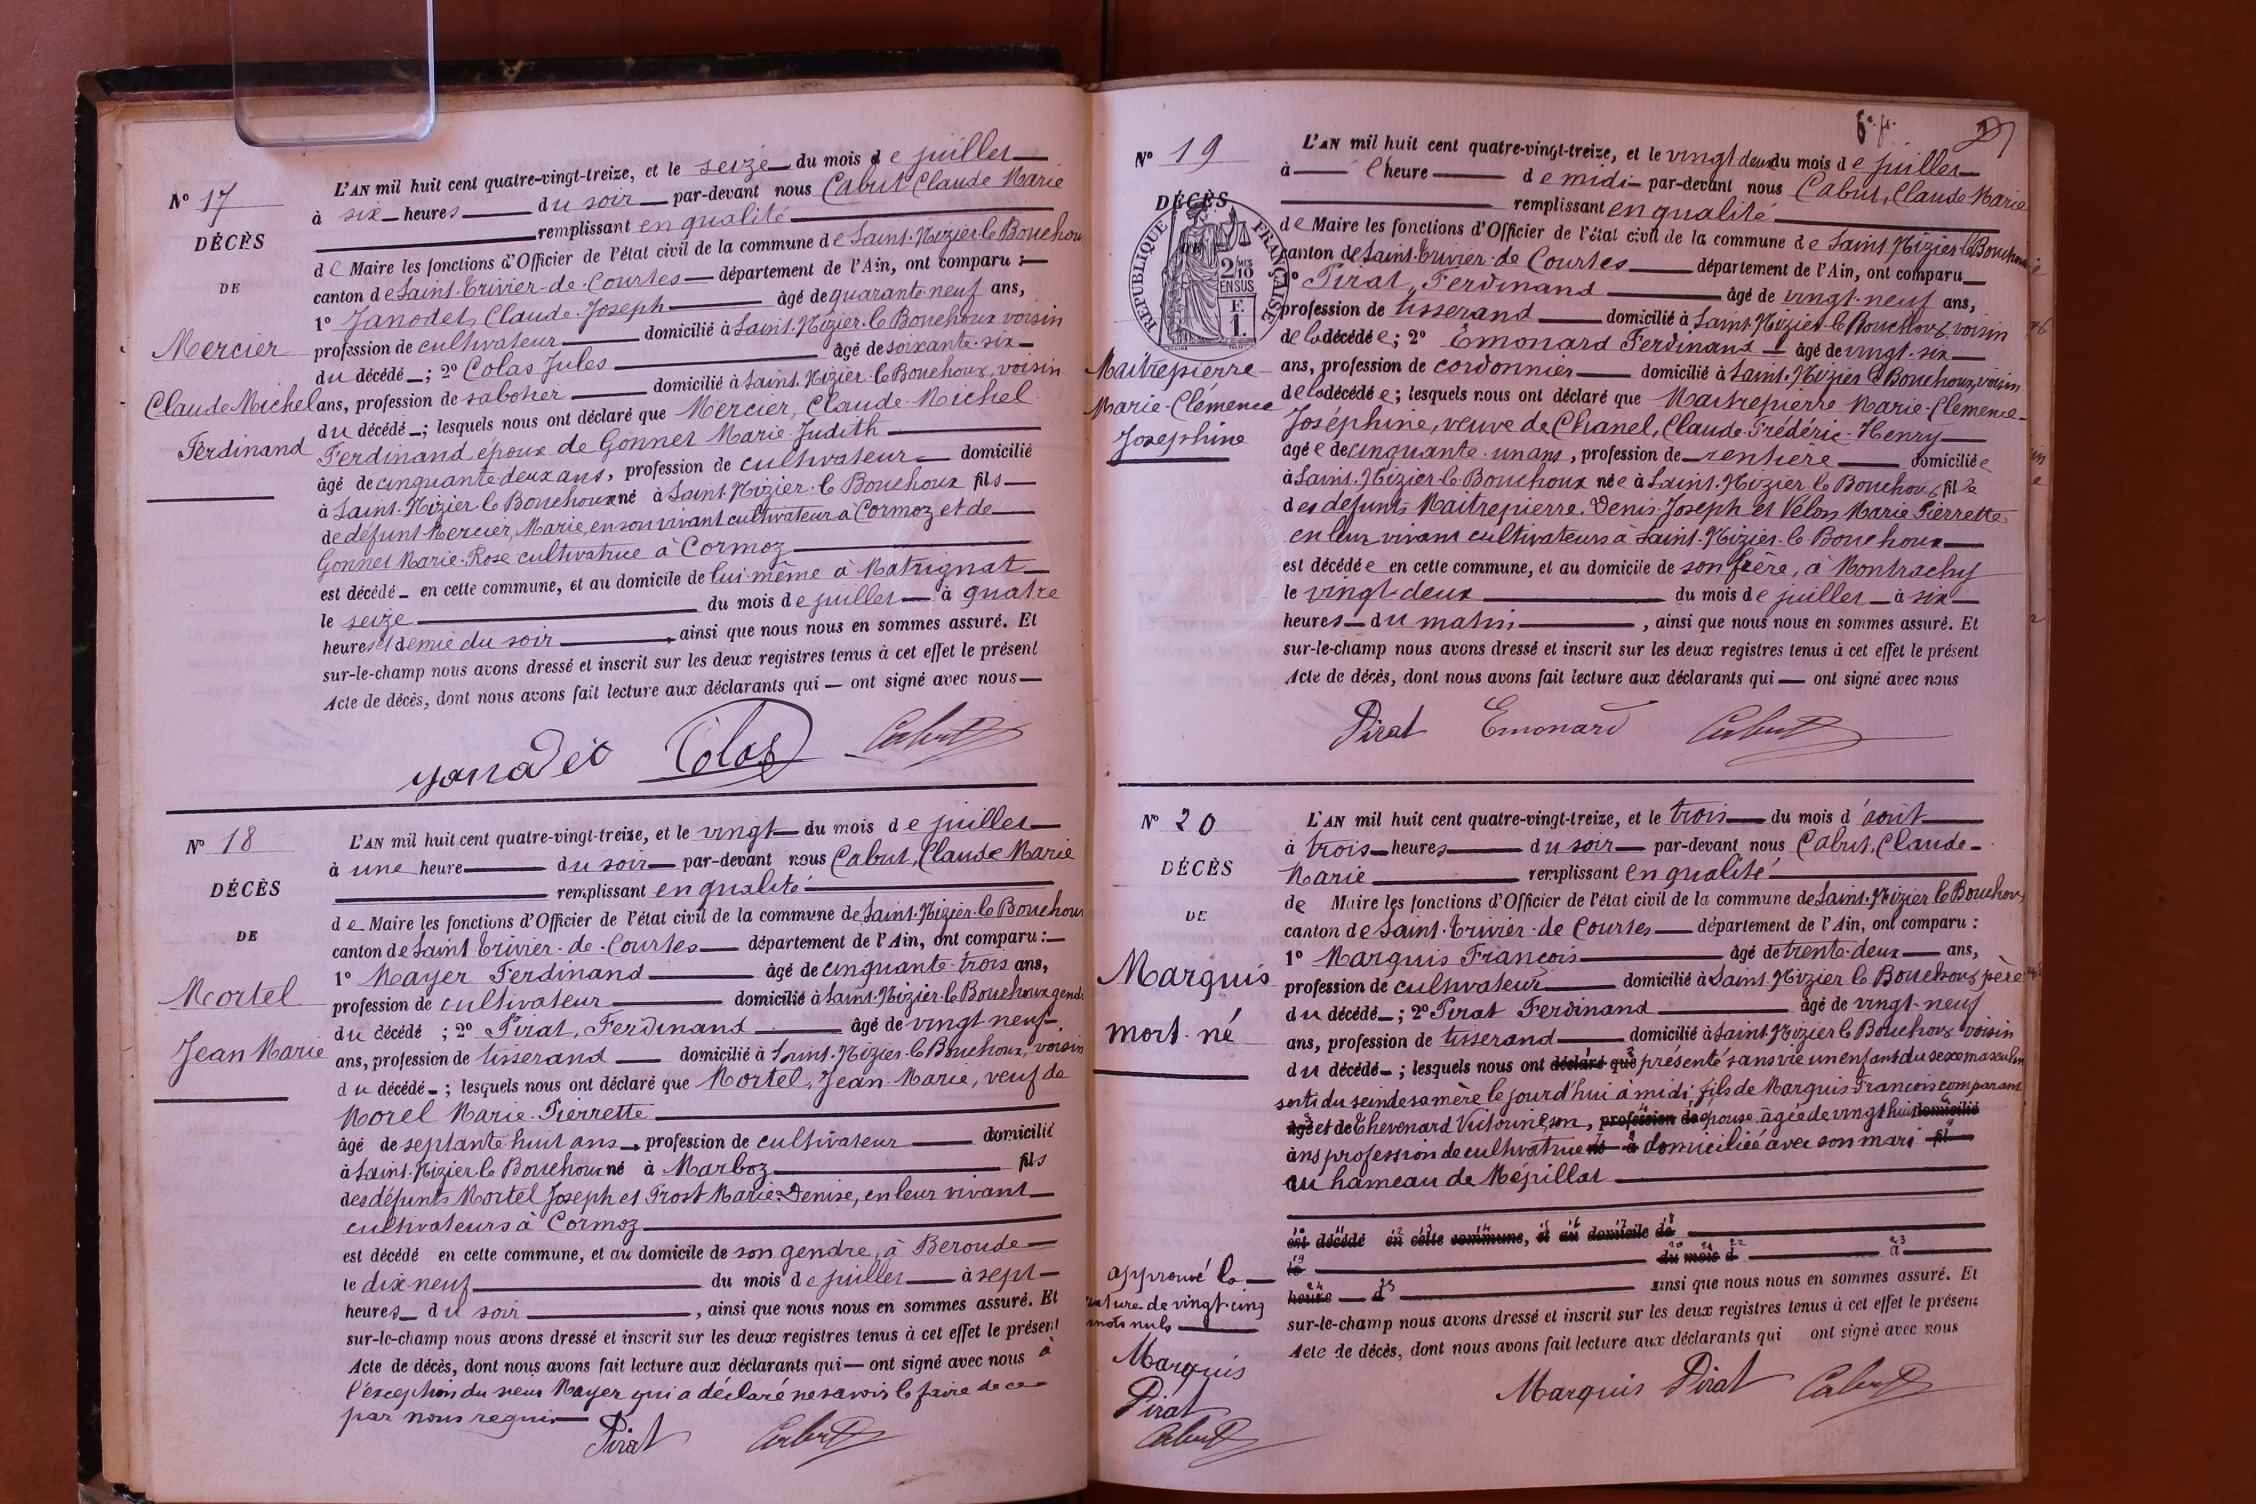 N° 17
DÉCÈS
DE
Mercier
Claude Michel
Ferdinand
L'AN mil huit cent quatre-vingt-treize, et le seize du mois de juillet
à six heures du soir par-devant nous Cabut Claude Marie
remplissant en qualité
de Maire les fonctions d'Officier de l'état civil de la commune de Saint-Nizier-le-Bouchoux
canton de Saint-Trivier-de-Courtes département de l'Ain, ont comparu :
1° Janodet, Claude-Joseph âgé de quarante neuf ans,
profession de cultivateur domicilié à Saint-Nizier-le-Bouchoux voisin
du décédé ; 2° Colas Jules âgé de soixante-six
ans, profession de sabotier domicilié à Saint-Nizier-le-Bouchoux, voisin
du décédé ; lesquels nous ont déclaré que Mercier, Claude-Michel
Ferdinand époux de Gonnet Marie-Judith
âgé de cinquante deux ans, profession de cultivateur domicilié
à Saint-Nizier le Bouchoux né à Saint-Nizier-le Bouchoux fils
de défunt Mercier, Marie, en son vivant cultivateur à Cormoz et de
Gonnet Marie-Rose cultivatrice à Cormoz
est décédé en cette commune, et au domicile de lui même à Matrignat
le seize du mois de juillet à quatre
heures et demie du soir , ainsi que nous nous en sommes assuré. Et
sur-le-champ nous avons dressé et inscrit sur les deux registres tenus à cet effet le présent
Acte de décès, dont nous avons fait lecture aux déclarants qui ont signé avec nous
Janodet Colas Cabut
N° 18
DÉCÈS
DE
Mortel
Jean Marie
L'AN mil huit cent quatre-vingt-treize, et le vingt du mois de juillet
à une heure du soir par-devant nous Cabut, Claude Marie
remplissant en qualité
de Maire les fonctions d'Officier de l'état civil de la commune de Saint-Nizier-le Bouchoux
canton de Saint Trivier-de-Courtes département de l'Ain, ont comparu :
1° Mayer Ferdinand âgé de cinquante-trois ans,
profession de cultivateur domicilié à Saint-Nizier-le Bouchoux gendre
du décédé ; 2° Pirat, Ferdinand âgé de vingt neuf
ans, profession de tisserand domicilié à Saint-Nizier-le Bouchoux, voisin
du décédé ; lesquels nous ont déclaré que Mortel, Jean-Marie, veuf de
Morel Marie-Pierrette
âgé de septante huit ans, profession de cultivateur domicilié
à Saint-Nizier le Bouchoux né à Marboz fils
des défunts Mortel Joseph et Prost Marie-Denise, en leur vivant
cultivateurs à Cormoz
est décédé en cette commune, et au domicile de son gendre, à Beroude
le dix-neuf du mois de juillet à sept
heures du soir , ainsi que nous nous en sommes assuré. Et
sur-le-champ nous avons dressé et inscrit sur les deux registres tenus à cet effet le présent
Acte de décès, dont nous avons fait lecture aux déclarants qui ont signé avec nous à
l'exception du sieur Mayer qui a déclaré ne savoir le faire de ce
par nous requis
Pirat Cabut
6e. ft.
N° 19
DÉCÈS
RÉPUBLIQUE FRANÇAISE
2/10 MES
EN SUS
F.
1.
Maitrepierre
Marie-Clémence
Josephine
L'AN mil huit cent quatre-vingt-treize, et le vingt deux du mois de juillet
à l'heure de midi par-devant nous Cabut, Claude Marie
remplissant en qualité
de Maire les fonctions d'Officier de l'état civil de la commune de Saint-Nizier-le Bouchoux
canton de Saint-Trivier-de Courtes département de l'Ain, ont comparu
1° Pirat, Ferdinand âgé de vingt-neuf ans,
profession de tisserand domicilié à Saint-Nizier-le Bouchoux, voisin
de la décédée ; 2° Emonard Ferdinand âgé de vingt-six
ans, profession de cordonnier domicilié à Saint-Nizier le Bouchoux, voisin
de la décédée ; lesquels nous ont déclaré que Maitrepierre Marie-Clémence
Joséphine, veuve de Chanel, Claude-Frédéric-Henry
âgée de cinquante-un ans, profession de rentière domiciliée
à Saint-Nizier-le-Bouchoux née à Saint-Nizier le Bouchoux fille
des défunts Maitrepierre, Denis-Joseph et Velon Marie Pierrette
en leur vivant cultivateurs à Saint-Nizier-le Bouchoux
est décédée en cette commune, et au domicile de son frère, à Montrachy
le vingt-deux du mois de juillet à six
heures du matin , ainsi que nous nous en sommes assuré. Et
sur-le-champ nous avons dressé et inscrit sur les deux registres tenus à cet effet le présent
Acte de décès, dont nous avons fait lecture aux déclarants qui ont signé avec nous
Pirat Emonard Cabut
N° 20
DÉCÈS
DE
Marquis
mort-né
L'AN mil huit cent quatre-vingt-treize, et le trois du mois d'août
à trois heures du soir par-devant nous Cabut, Claude
Marie remplissant en qualité
de Maire les fonctions d'Officier de l'état civil de la commune de Saint-Nizier le Bouchoux
canton de Saint-Trivier-de Courtes département de l'Ain, ont comparu :
1° Marquis François âgé de trente-deux ans,
profession de cultivateur domicilié à Saint-Nizier le Bouchoux père
du décédé ; 2° Pirat Ferdinand âgé de vingt-neuf
ans, profession de tisserand domicilié à Saint-Nizier le Bouchoux voisin
du décédé ; lesquels nous ont déclaré que présenté sans vie un enfant du sexe masculin
sorti du sein de sa mère le jourd'hui à midi, fils de Marquis François comparant
âgé et de Thevenard Victorine, son, profession de épouse, âgée de vingt huit domicilié
ans profession de cultivatrice né à domiciliée avec son mari fil
au hameau de Mépillat
est décédé en cette commune, et au domicile de
le du mois d à
heure d ainsi que nous nous en sommes assuré. Et
sur-le-champ nous avons dressé et inscrit sur les deux registres tenus à cet effet le présent
Acte de décès, dont nous avons fait lecture aux déclarants qui ont signé avec nous
Marquis Pirat Cabut
approuvé la
rature de vingt-cinq
mots nuls
Marquis
Pirat
Cabut